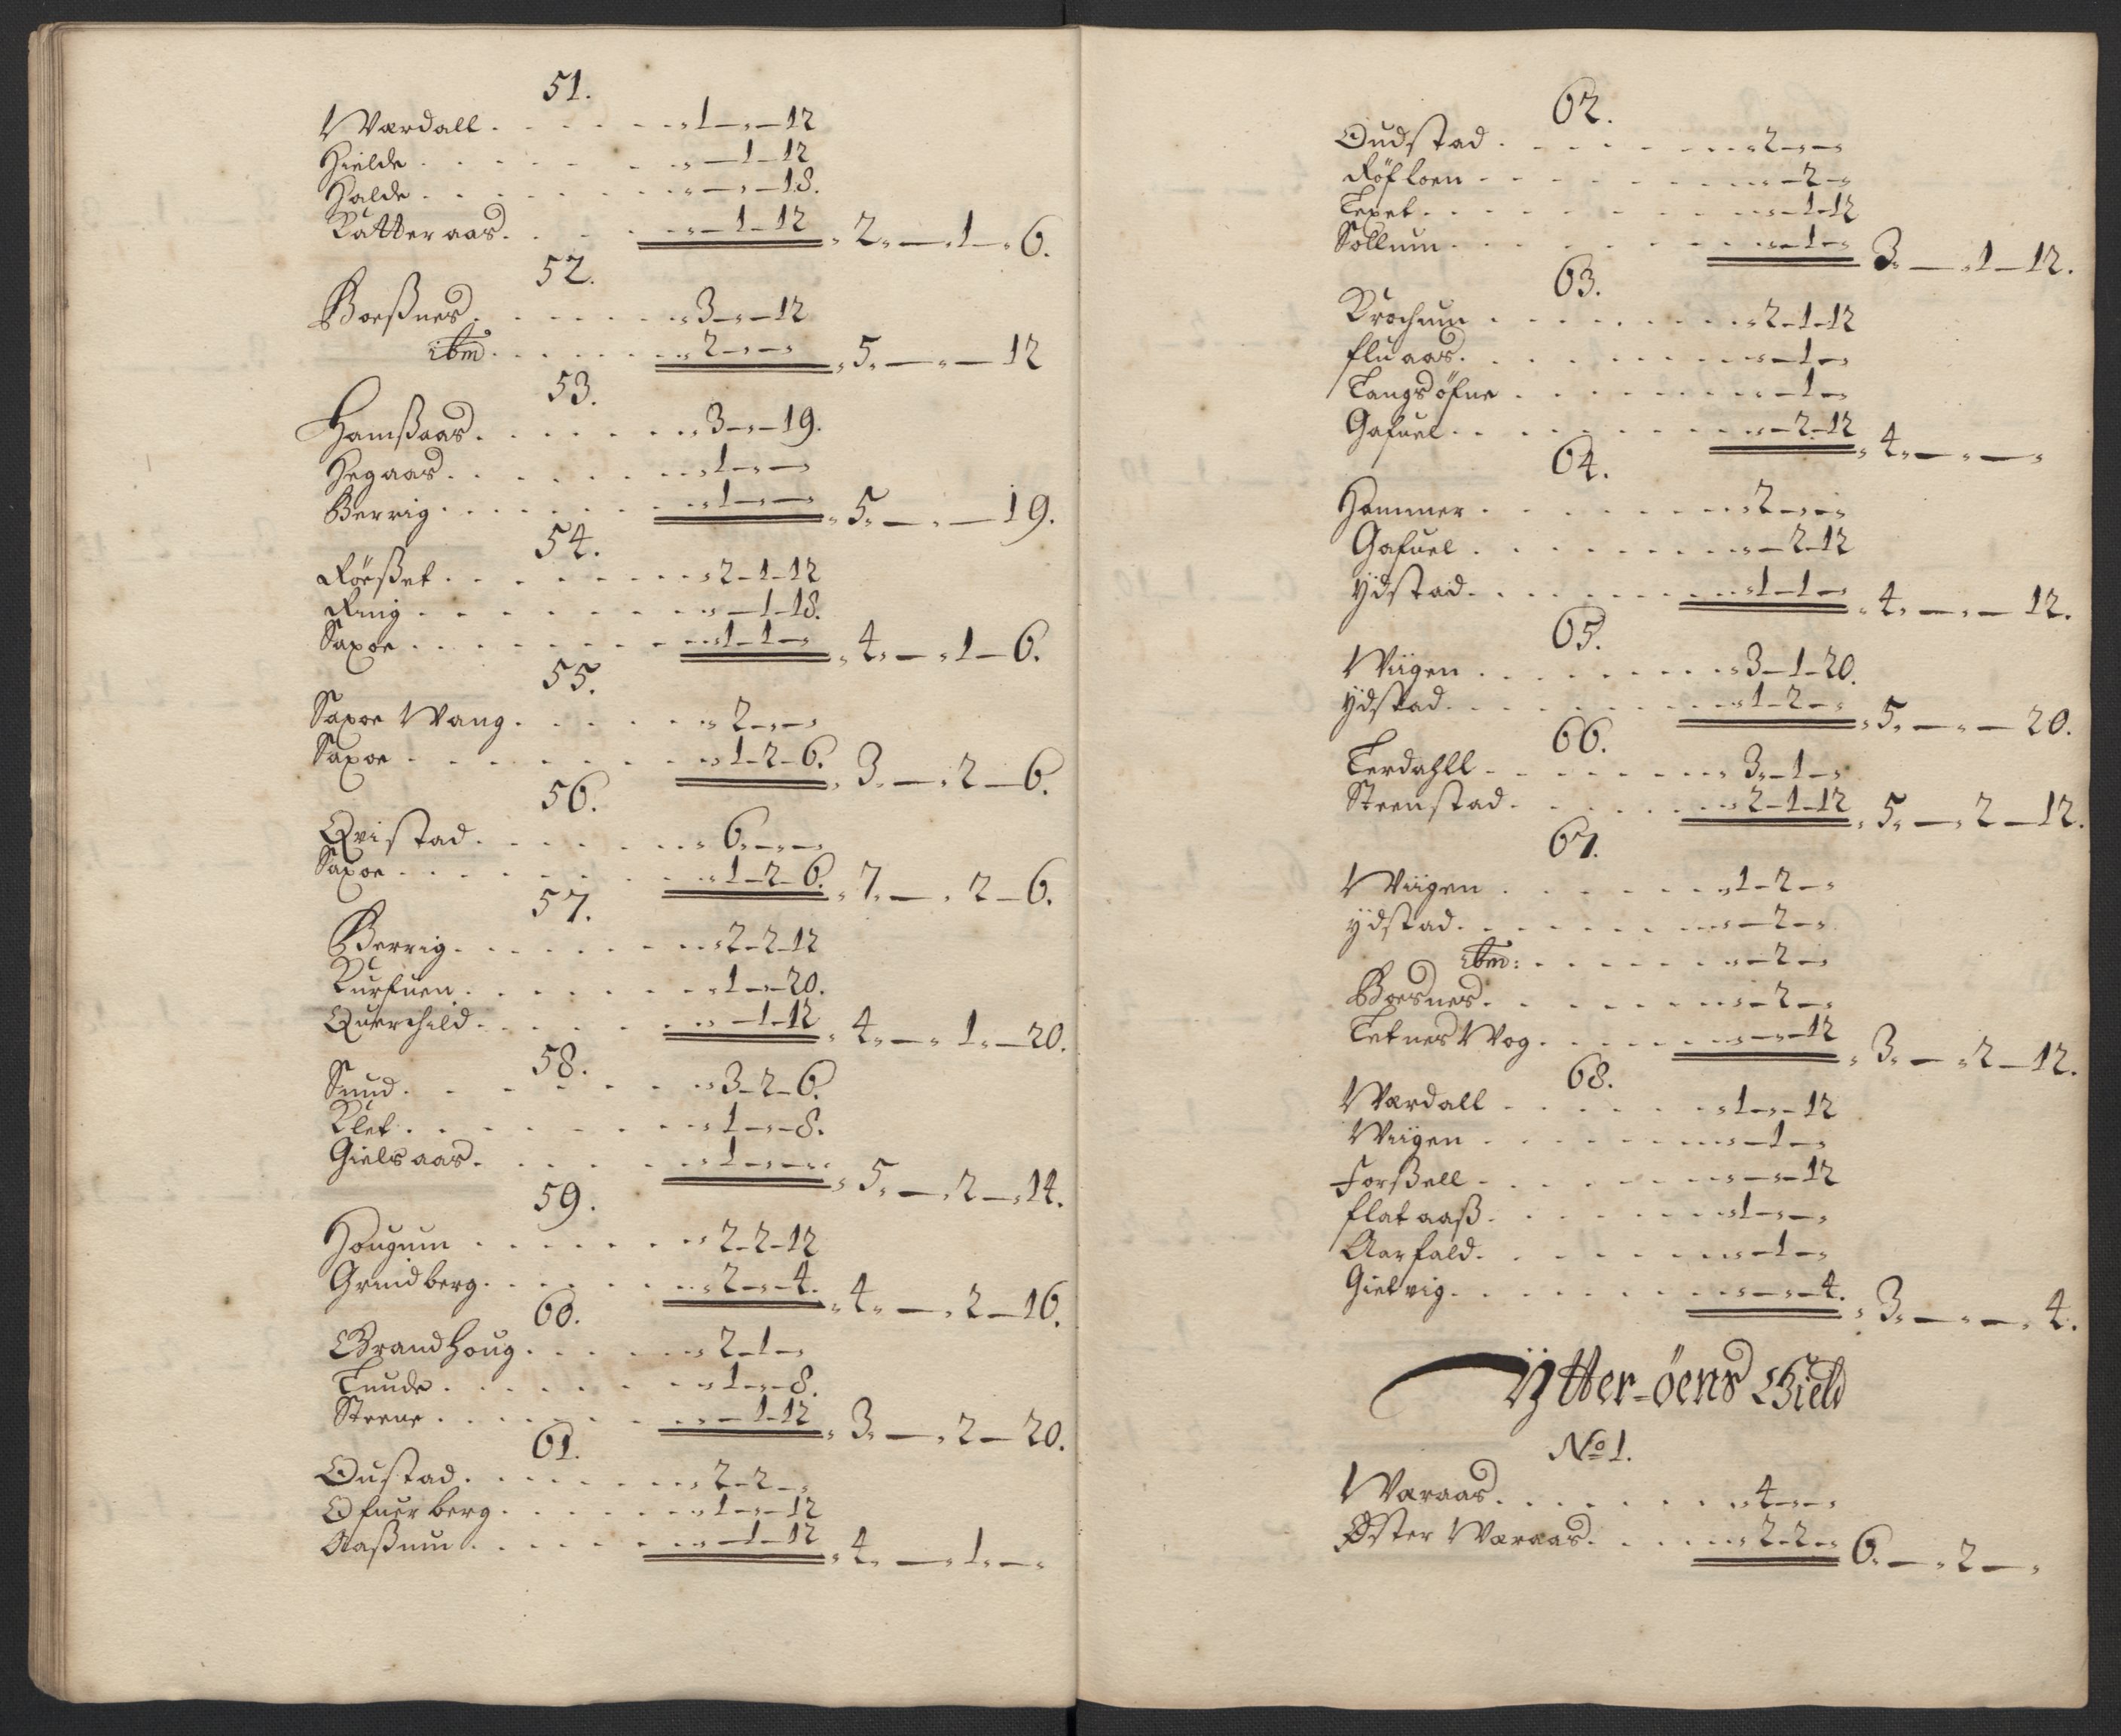 51.
Wærdall . . . . . . . „1—„—12
Hielde . . . . . . . „—1—12
Halde . . . . . . . „—„—18.
Katteraas . . . . „—1—12 „2„—„1—„6.
52.
Boesßnes . . . . . . „3—„—12
ibm . . . . . „2—„—„ „5„—„—12
53.
Hamßaas . . . . . . „3—„—19.
Hegaas . . . . . . „1—„—
Berrig . . . . . . „1—„— „5„—„—19.
54.
Röeßet . . . . . . . „2—1—12
Ring . . . . . . . „—1—18.
Saxoe . . . . . . „1—1—„ „4„—„1—6.
55.
Saxoe Wang . . . . . „2—„—„
Saxoe . . . . . . . „1—2—6. „3„—„2—6.
56.
Qvistad . . . . . . „6„—„—„
Saxoe . . . . . . . „1—2—6. „7„—„2—6.
57.
Berrig . . . . . . . „2—2—12
Kurfuen . . . . . . „1—„—20.
Querchild . . . . . „—1—12 „4„—„1„—20.
58.
Sund . . . . . . „3—2—6.
Klet . . . . . . . „1—„—8.
Gielsaas . . . . . „1—„—„ „5„—„2—„14.
59.
Hougum . . . . . . „2—2—12
Grindberg . . . . . „2—„—4. „4„—„2—16.
60.
Brandhoug . . . . . „2—1—„
Tuude . . . . . . „1—„—8.
Steene . . . . . . „—1—12 „3„—„2—20.
61.
Oustad . . . . . . „2—2—„
Ofuerberg . . . . . „1—„—12
Aaßnum . . . . . . „—1—12 „4„—„1„—„
62.
Oudstad . . . . . . „2—„—„
Röfloen . . . . . . „—2—„
Texet . . . . . . . „—1—12
Sollum . . . . . . „—1—„ 3„—„1—12.
63.
Krochum . . . . . . „2—1—12
fluaas . . . . . . . „—1—„
Tangsöfne . . . . . „—1—„
Gafuel . . . . . . „—2—12 „4„—„—„
64.
Hammer . . . . . . „2—„—„
Gafuel . . . . . . „—2—12
ÿdstad . . . . . . „1—1—„ „4„—„—12.
65.
Wiigen . . . . . . „3—1—20.
ÿdstad . . . . . . „1—2—„ „5„—„—20.
66.
Terdahll . . . . . . „3„—1—„
Steenstad . . . . . „2—1—12 „5„—„2—12.
67.
Wiigen . . . . . . „1—2—„
ÿdstad . . . . . . „—2—„
ibm: . . . . . . „—2—„
Boesnes . . . . . . „—2—„
Tetnes Wog . . . . . „—„—12 „3„—„2—12.
68.
Wærdall . . . . . . „1—„—12
Wiigen . . . . . . „—1—„
Forßell . . . . . . „—„—12
flataaß . . . . . . „1—„—„
Aarfald . . . . . . „—1—„
Gietvig . . . . . . „—„—4. „3„—„—„4.
Ÿtter-öens Gield
No 1.
Wæraas . . . . . . „4—„—„
Øster Wæraas . . . . „2—2—„ 6„—„2—„